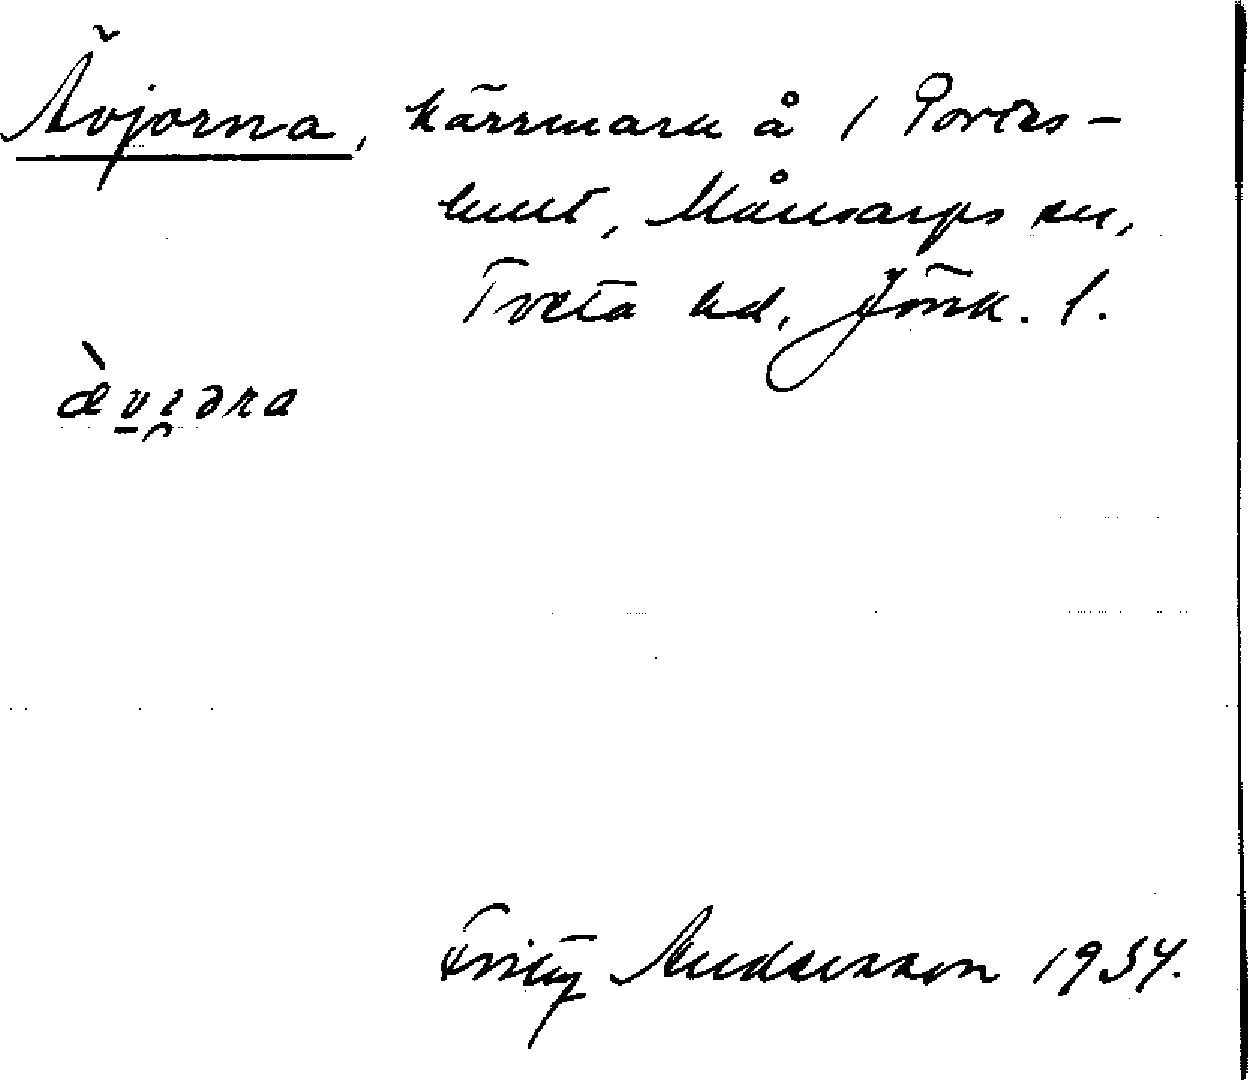 Ävjorna, kärrmark å 1 Porers-
hult, Månsarps sn,
Tveta hd, Jönk. l.
ævjəra
Fritz Andersson 1934.